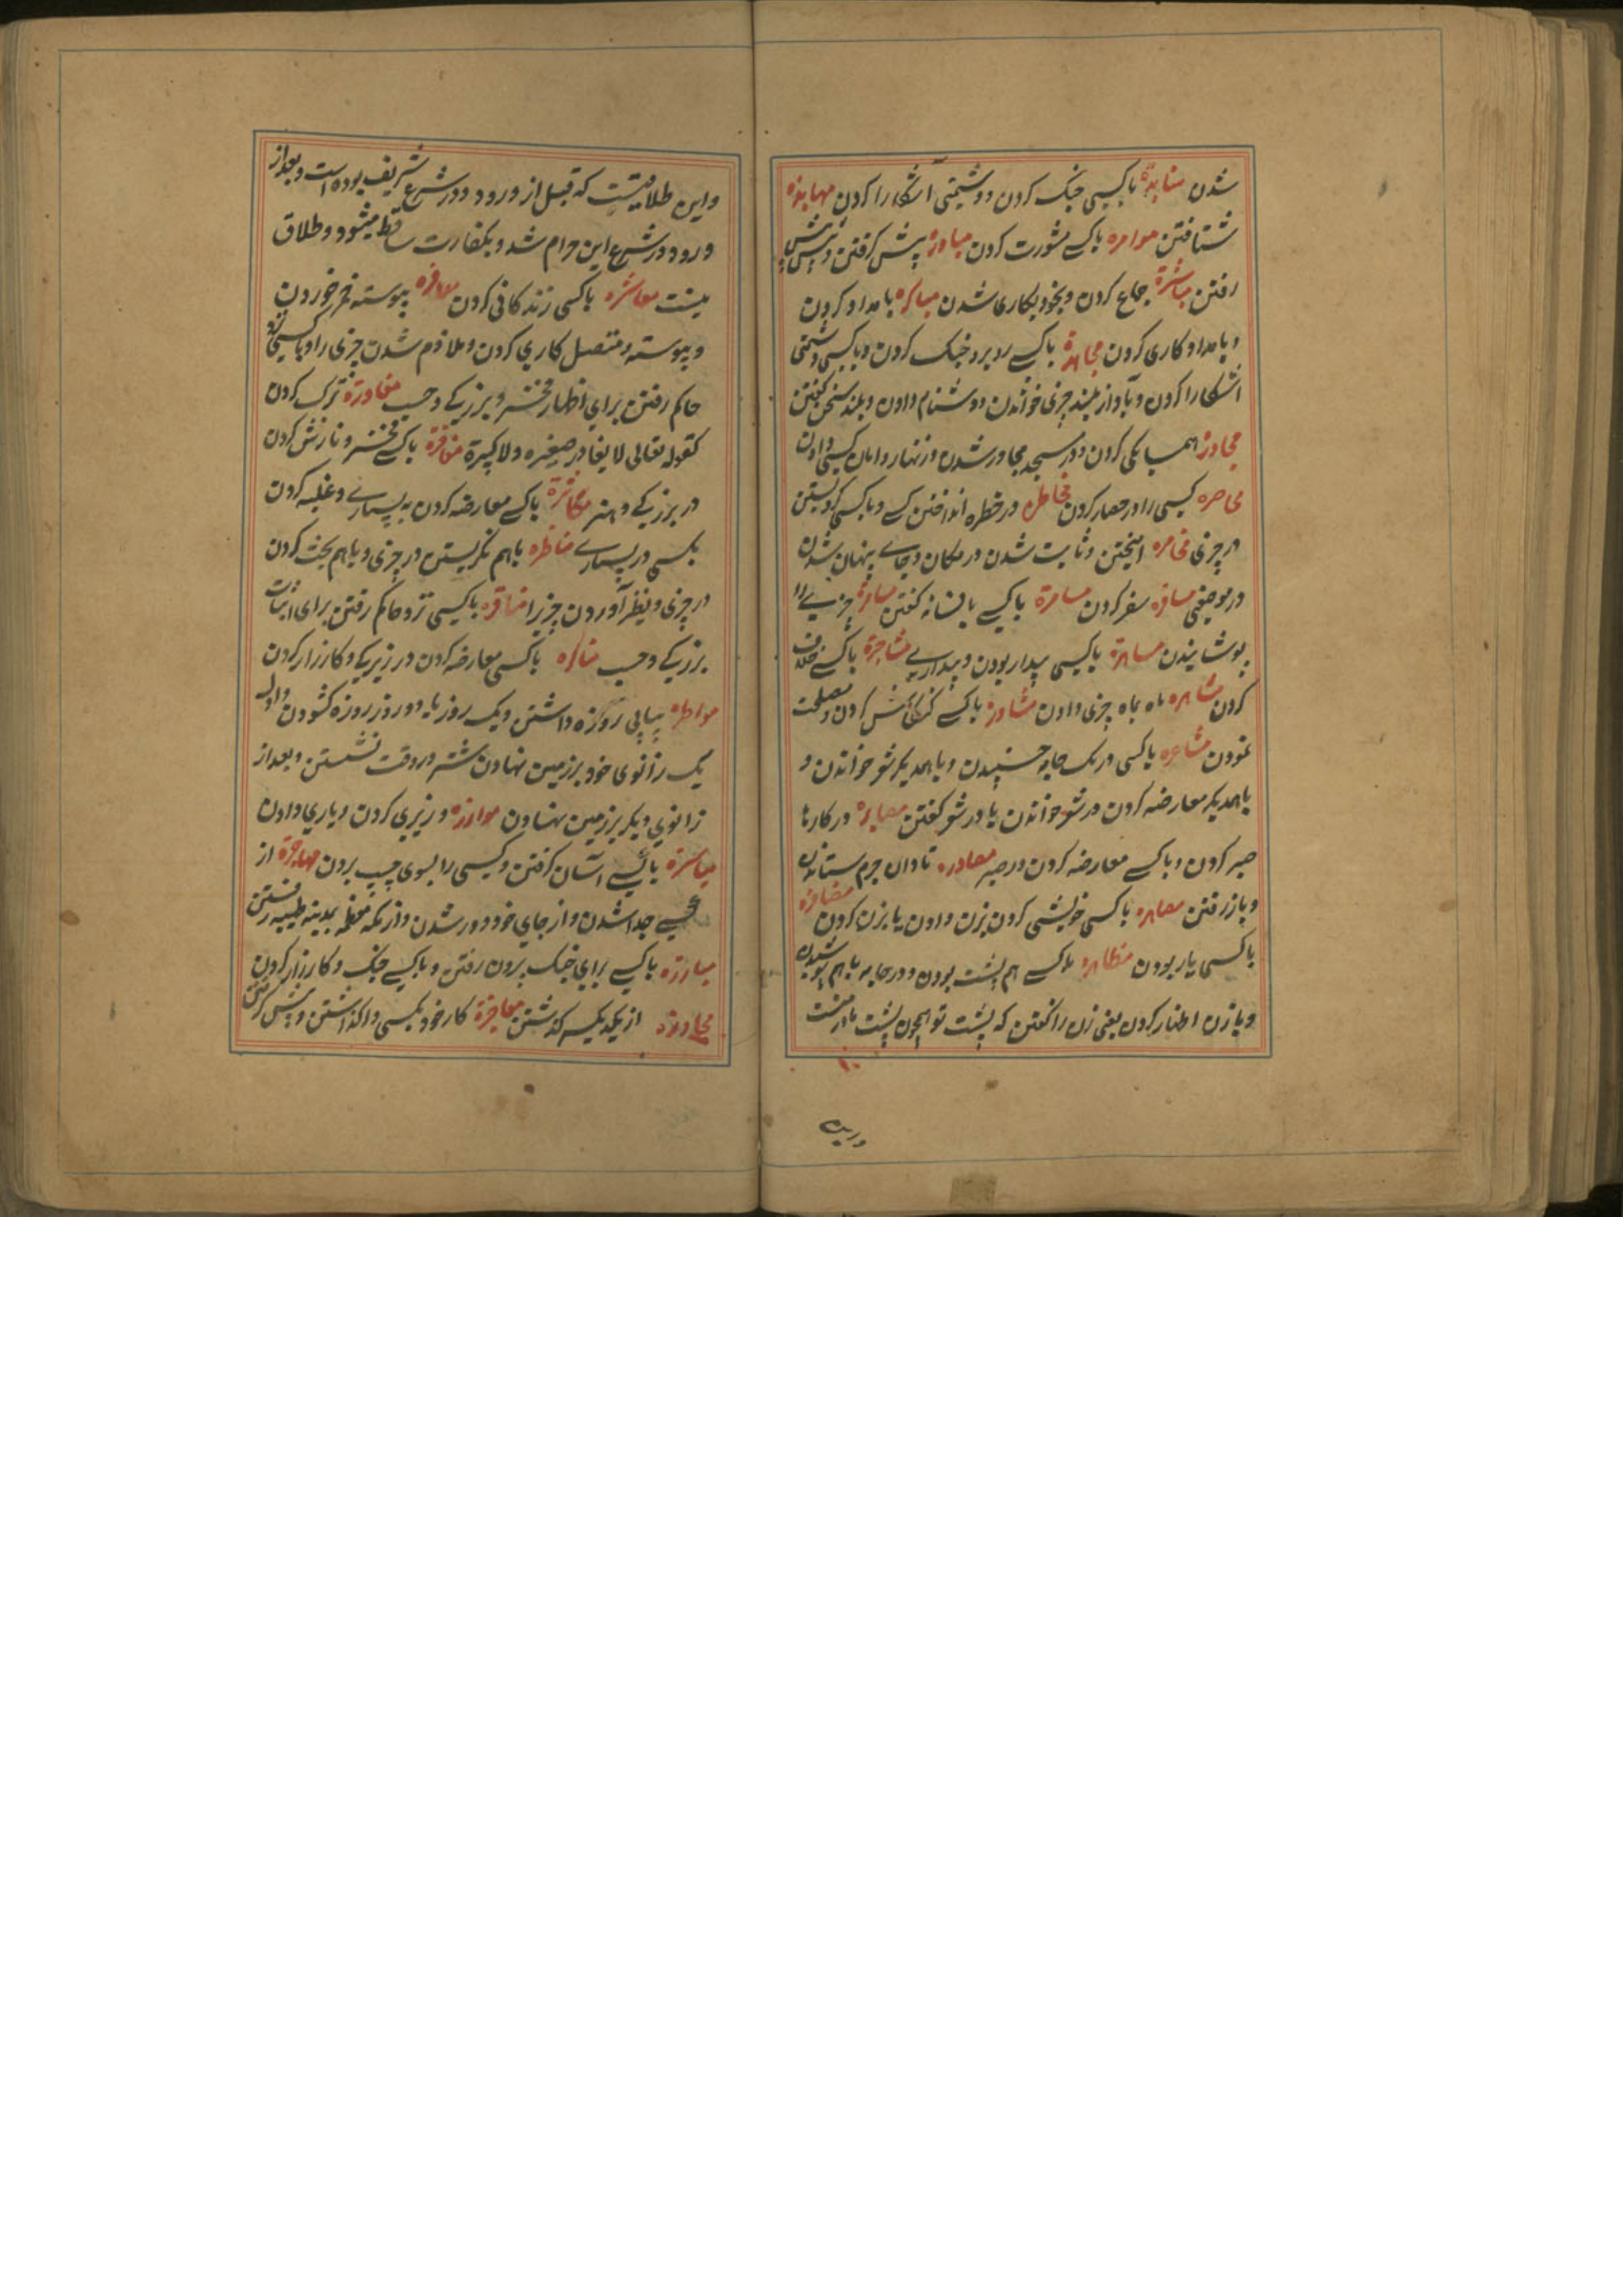 شدن منابذة باکسی جنک کردن و دشمنی آشکارا کردن مهابذه
شتافتن موامره باکسے مشورت کردن مبادرة پیش کرفتن و پیش
رفتن مباشرة جماع کردن و بخود بکاری شدن مباکره بامداد کردن
و بامداد کاری کردن مجاهرة باکسے روبرو جنک کردن و باکسی دشمنی
اشکارا کردن و بآواز بلند چیزی خواندن و دشنام دادن و بلند سخن کفتن
مجاورة همسایکی کردن و در مسجد مجاور شدن و زنهار و امان کسی دادن
محاصره کسی را در حصار کردن مخاطره در خطره انداختن کسے و باکسی کرو بستن
در چیزی مخامره امیختن و ثابت شدن در مکان و جاے پنهان شدن
در موضعی مسافره سفر کردن مسامرة باکسے بافسانه کفتن مساترة چیزے را
پوشانیدن مساهرة باکسی بیدار بودن و بیدارے مشاجرة باکسے خلاف
کردن مشاهره ماه بماه چیزی دادن مشاورة باکسے کنکائش کردن و مصلحت
نمودن مشاعره باکسی در یک جامه خسپیدن و باهمدیکر شعر خواندن و
باهمدیکر معارضه کردن در شعر خواندن یا در شعر کفتن مصابرة در کارها
صبر کردن و باکسے معارضه کردن در صبر مصادره تاوان جرم ستاندن
و باز رفتن مصاهره باکسی خویشی کردن بزن دادن یا بزن کردن مضافرة
باکسی یار بودن مظاهرة باکسے هم پشت بودن و دو جامه باهم پوشیدن
و بازن اظهار کردن یعنی زن را کفتن که پشت تو همچون پشت مادر منست
و این طلاقیست که قبل از ورود در شرع شریف بوده است و بعد از
ورود در شرع این حرام شد و بکفارت ساقط میشود و طلاق
نیست معاشره باکسی زندکانی کردن معاقره پیوسته خمر خوردن
و پیوسته و متصل کاری کردن و ملازم شدن چیزی را و باکسی
حاکم رفتن برای اظهار فخر و بزرکے و حسب مغادرة ترک کردن
کقوله تعالی لا یغادر صغیره ولا کبیرة مفاخرة باکسے فخر و نازش کردن
در بزرکے و هنر مکاثرة باکسے معارضه کردن به بسیارے و غلبه کردن
بکسی در بسیارے مناظره باهم نکریستن در چیزی و باهم بحث کردن
در چیزی و بنظر آوردن چیزیرا منافره باکسی نزد حاکم رفتن برای اثبات
بزرکے و حسب مناکره باکسی معارضه کردن در زیرکے و کارزار کردن
مواطره پیاپی روزه داشتن و یک روز یا دو روز روزه کشودن و اول
یک زانوی خود بر زمین نهادن شتر در وقت نشستن و بعد از
زانوی دیکر بر زمین نهادن موازره وزیری کردن و یاری دادن
میاسرة باکسے آسان کرفتن و کسی را بسوی چپ بردن مهاجرة از
کسے جدا شدن و از جای خود دور شدن و از مکه معظمه بمدینه طیبه رفتن
مبارزه باکسے برای جنک برون رفتن و باکسے جنک و کارزار کردن
مجاوزة از یکدیکر کذشتن معاجزة کار خود بکسی واکذاشتن و پیش کرفتن